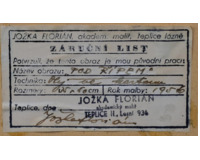 JOŽKA FLORIAN, akadem. malíř, Teplice lázně
ZÁRUČNÍ LIST
Potvrzuji, že tento obraz je mou původní prací
Název obrazu: "POD ŘÍPEM"
Technika: Olej
Rozměry: Rok malby: 195
JOŽKA FLORIAN
akademický malíř
Teplice, dne TEPLICE II., Lesní 936